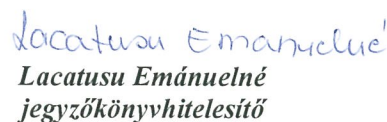 Lacatusu Emanuelné
Lacatusu Emánuelné
jegyzőkönyvhitelesítő